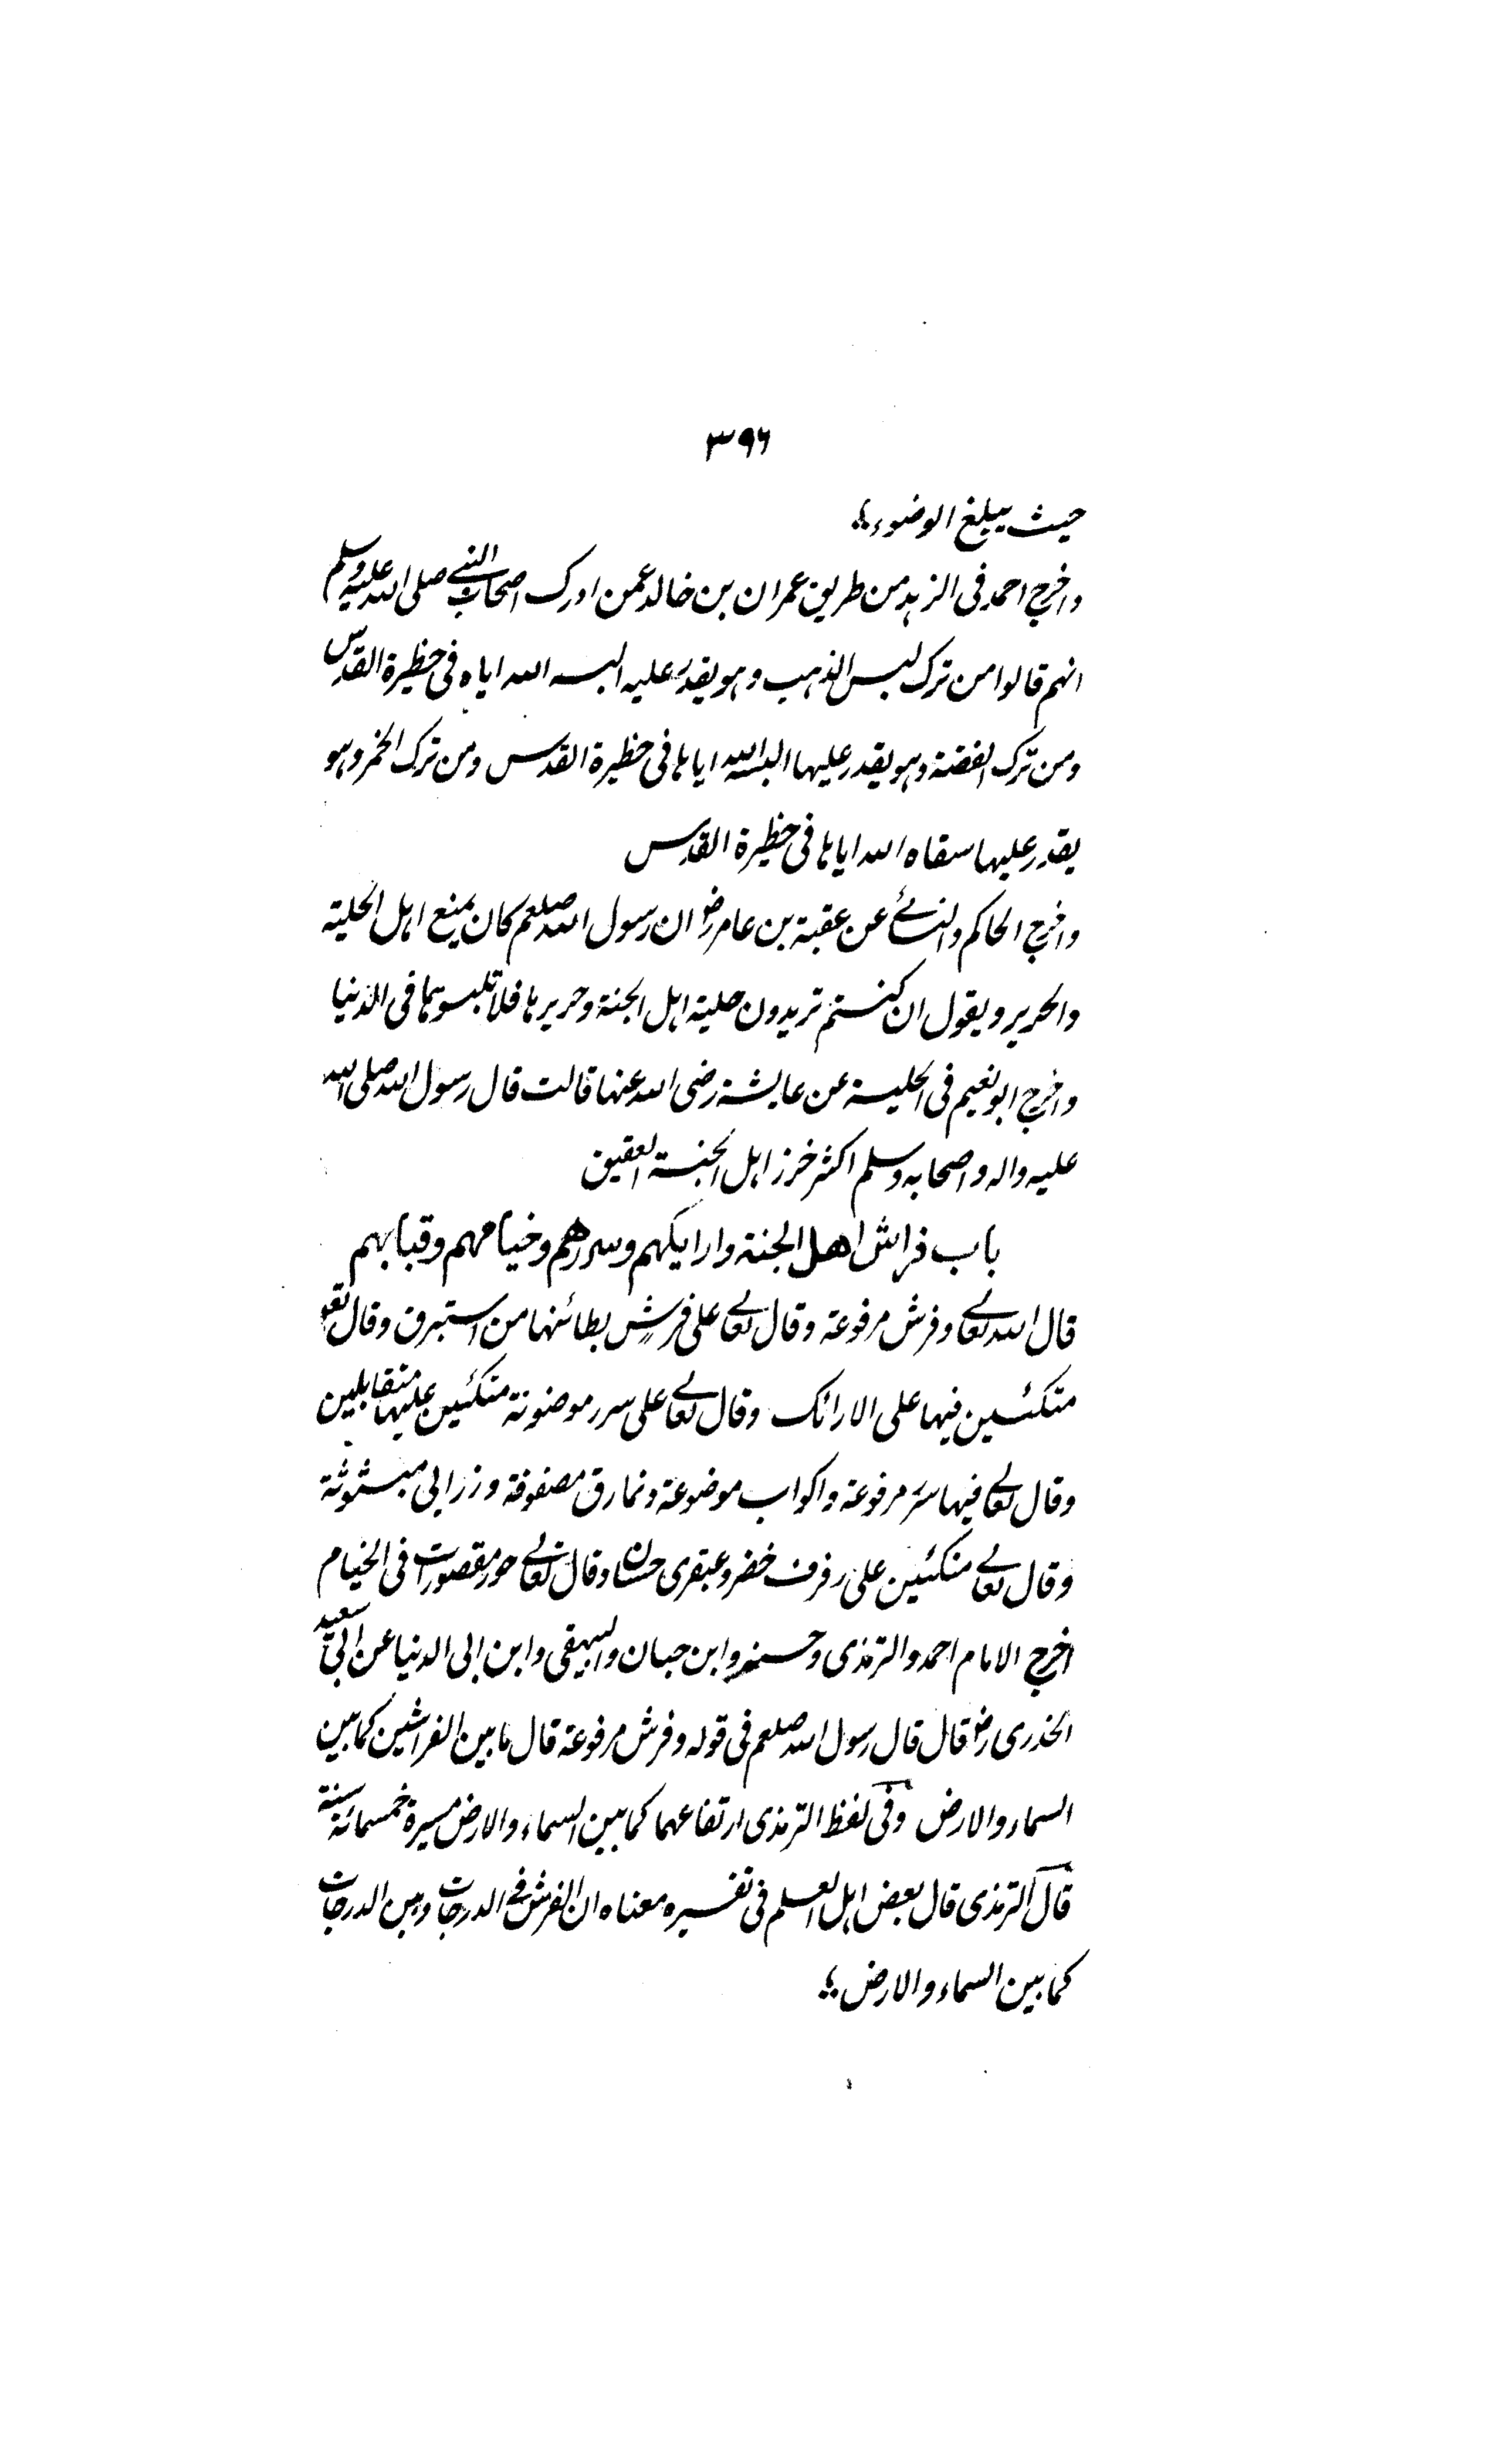 ۳۹۶
حیث یبلغ الوضوء؛
واخرج احمد فی الزہد من طریق عمران بن خالد عمن ادرک اصحاب النبی صلی اللہ علیہ وسلم
انہم قالوا من ترک لبس الذہب وہو یقدر علیہ البسہ اللہ ایاہ فی حظیرۃ القدس
ومن ترک الفضۃ وہو یقدر علیہا البسہ اللہ ایاہا فی حظیرۃ القدس ومن ترک الخمر وہو
یقدر علیہا سقاہ اللہ ایاہا فی حظیرۃ القدس
واخرج الحاکم والنسائے عن عقبۃ بن عامر رض ان رسول اللہ صلعم کان یمنع اہل الحلیۃ
والحریر ویقول ان کنتم تریدون حلیۃ اہل الجنۃ وحریرہا فلا تلبسوہما فی الدنیا
واخرج ابو نعیم فی الحلیۃ عن عایشۃ رضی اللہ عنہا قالت قال رسول اللہ صلی اللہ
علیہ والہ واصحابہ وسلم اکثر خرز اہل الجنۃ العقیق
باب فراش اهل الجنۃ وارایکہم وسررهم وخیامہم وقبابہم
قال اللہ تعالے وفرش مرفوعۃ وقال تعالے علی فرشٍ بطائنہا من استبرق وقال تعو
متکئین فیہا علی الارائک وقال تعالے علی سرر موضونۃ متکئین علیہا متقابلین
وقال تعالے فیہا سرر مرفوعۃ واکواب موضوعۃ ونمارق مصفوفۃ وزرابی مبثوثۃ
وقال تعالے متکئین علی رفرف خضر وعبقری حسان وقال تعالے حور مقصورات فی الخیام
اخرج الامام احمد والترمذی وحسنہ وابن حبان والبیہقی وابن ابی الدنیا عن ابی سعید
الخدری رض قال قال رسول اللہ صلعم فی قولہ وفرش مرفوعۃ قال ما بین الفراشین کما بین
السماء والارض وفی لفظ الترمذی ارتفاعہما کما بین السماء والارض مسیرۃ خمسمائۃ سنۃ
قال الترمذی قال بعض اہل العلم فی تفسیرہ معناہ ان الفرش فے الدرجات وبین الدرجات
کما بین السماء والارض؛